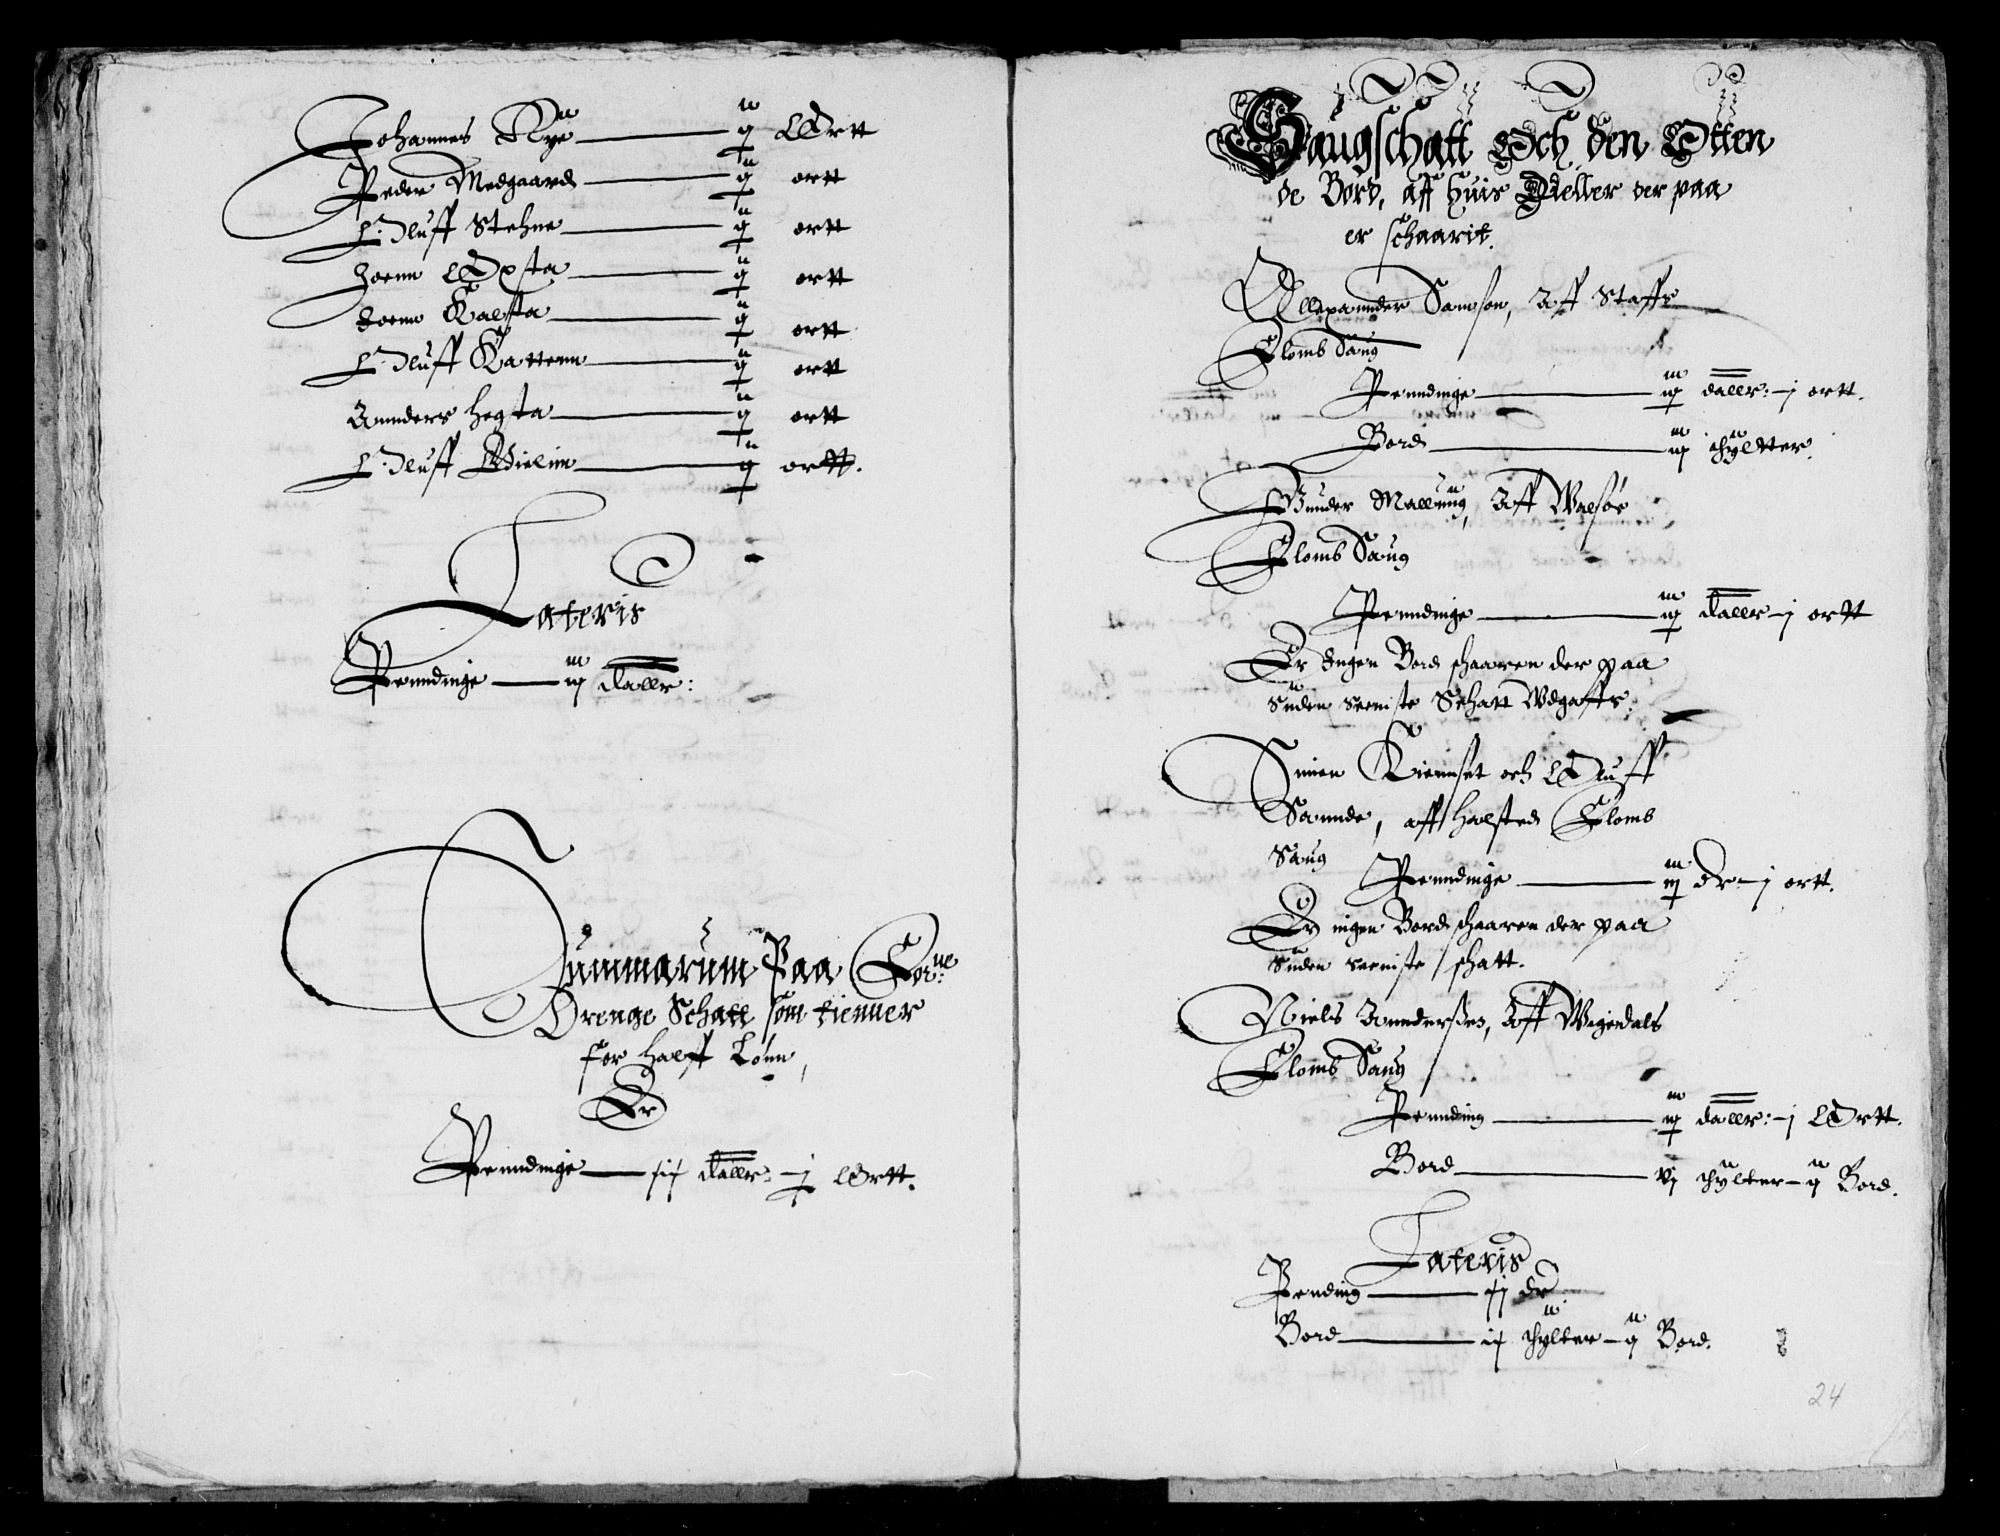 Johannes Rye — ij Ortt
Peder Medgaard — ij ortt
Oluff Stehne — ij ortt
Joenn Opsta — ij ortt
Joenn Kalsta — ij ortt
Oluff Kattenn — ij ortt
Annders Hegsta — ij ortt
Oluff Wielim — ij ortt.
Lateris
Penndinge — iij dallr:
Summarum Paa
Drenge Schatt som tienner
for halff Lønn,
Er
Penndinge — dallr: j Ortt.
Saugschatt Och den Otten
de Bord, aff huis Dieller der paa
er schaarit.
Allexannder Samson, Aff Staffr
Flomb Saug
Penndinge — iij dallr: j ortt.
Bord — iij thylter.
Gunder Mallmug, Aff Walsøe
Flomb Saug
Penndinge — iij dallr j ortt
Er Ingen Bord schaaren der paa
Siiden seeniste Schatt Wdgaffs.
Simen Kiennset och Oluff
Saunde, aff Halsted Flomb
Saug
Penndinge — iij dr j ortt.
Er ingen Bord schaaren der paa
Siiden seeniste schatt.
Niels Annderssen, Aff Wegedals
Flomb Saug
Penndinng — iij dallr: j Ortt.
Bord — vj thylter ij Bord.
Lateris
Pending — dr
Bord — ix thylter ij Bord.
24